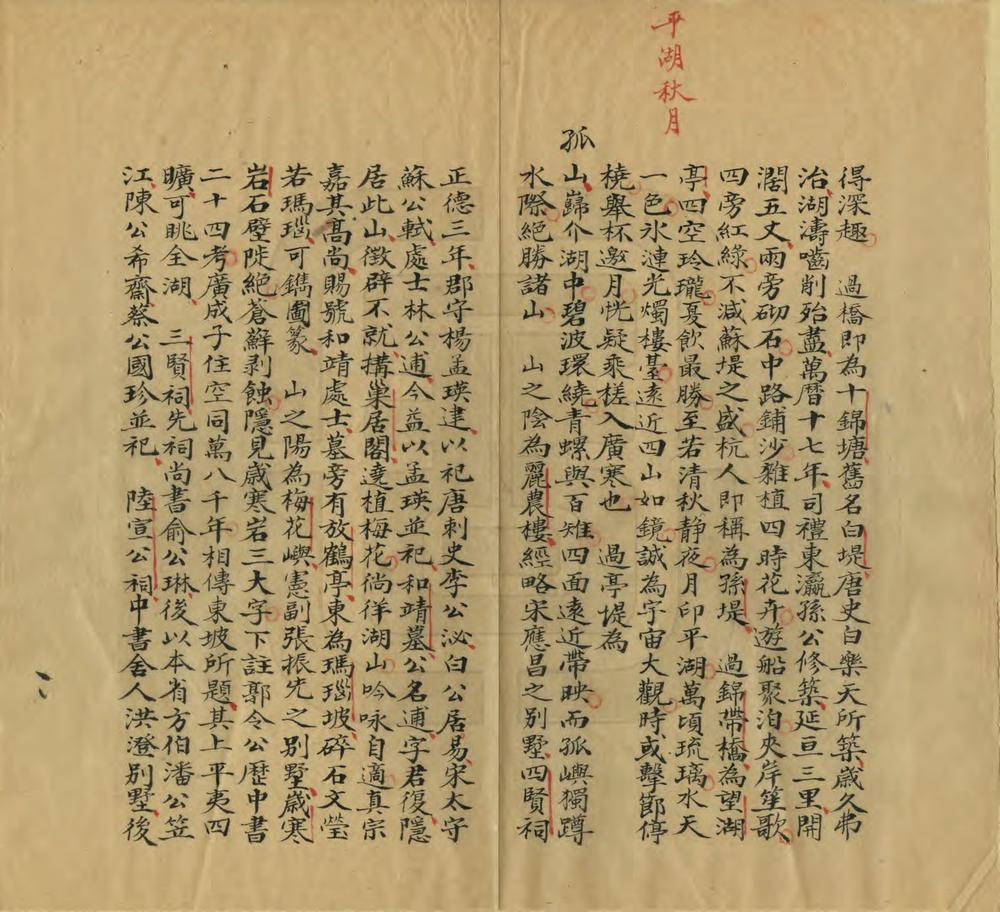 平湖秋月
得深趣　過橋即為十錦塘舊名白堤唐史白樂天所築歲久弗
治湖濤嚙削殆盡萬曆十七年司禮東瀛孫公修築延亘三里開
濶五丈兩旁砌石中路鋪沙雜植四時花卉遊船聚泊夾岸笙歌
四旁紅綠不減蘇堤之盛杭人即稱為孫堤　過錦帶橋為望湖
亭四空玲瓏憂飲最勝至若清秋静夜月印平湖萬頃琉璃水天
一色氷漣光燭樓臺遠近四山如鏡誠為宇宙大觀時或擊節停
橈舉杯邀月恍疑乘槎入廣寒也　過亭堤為
孤山巋仆湖中碧波環繞青螺與百雉四面遠近帶映而孤嶼獨蹲
水際絕勝諸山　山之陰為麗農樓經略宋應昌之別墅四賢祠
正德三年郡守楊孟瑛建以祀唐刺史李公泌白公居易宋太守
蘇公軾處士林公逋今益以孟瑛並祀和靖墓公名逋字君復隱
居此山徵辟不就構巢居閣遶植梅花徜徉湖山吟咏自適真宗
嘉其高尚賜號和靖處士墓旁有放鶴亭東為瑪瑙坡碎石文瑩
若瑪瑙可鐫圖篆　山之陽為梅花嶼憲副張振先之別墅歲寒
岩石壁陡絕蒼蘚剥蝕隱見歲寒岩三大字下註郭令公歷中書
二十四考廣成子住空同萬八千年相傳東坡所題其上平夷四
曠可眺全湖　三賢祠先祠尚書俞公琳後以本省方伯潘公笠
江陳公希齋蔡公國珍並祀　陸宣公祠中書舍人洪澄別墅後